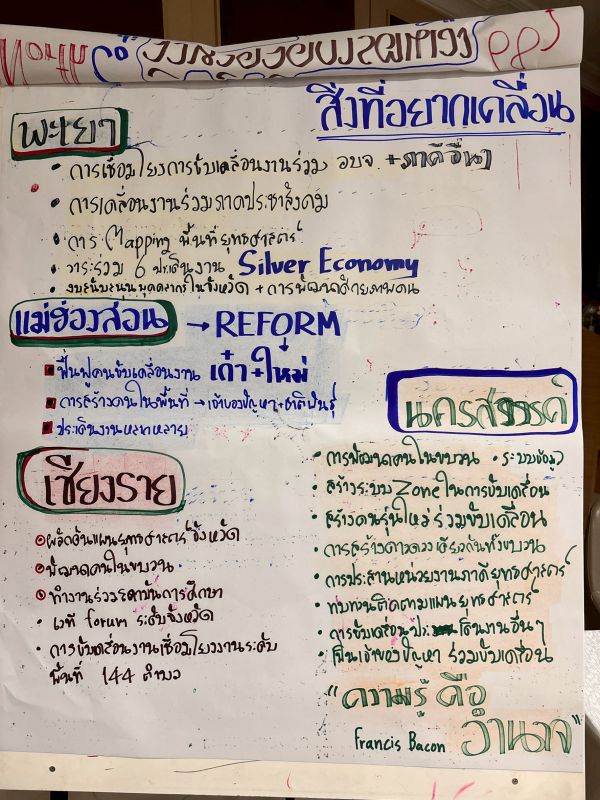 สิ่งที่อยากเคลื่อน
พะเยา
• การเชื่อมโยงการขับเคลื่อนงานร่วม อบจ. + ภาคีอื่นๆ
• การเคลื่อนงานร่วมภาคประชาสังคม
• การ Mapping พื้นที่ยุทธศาสตร์
• วาระร่วม 6 ประเด็นงาน Silver Economy
• งบสนับสนุนบุคลากรในจังหวัด + การพัฒนาศักยภาพคน
แม่ฮ่องสอน → REFORM
เก่า+ใหม่
ฟื้นฟูคนขับเคลื่อนงาน
การสร้างคนในพื้นที่ → เจ้าของปัญหา+ชาติพันธุ์
ประเด็นงานหลากหลาย
เชียงราย
ผลักดันแผนยุทธศาสตร์จังหวัด
พัฒนาคนในขบวน
ทำงานร่วมสถาบันการศึกษา
• เวที forum ระดับจังหวัด
• การขับเคลื่อนงานเชื่อมโยงงานระดับ
พื้นที่ 144 ตำบล
นครสวรรค์
• การพัฒนาคนในขบวน • ระบบข้อมูล
• สร้างระบบ Zone ในการขับเคลื่อน
• สร้างคนรุ่นใหม่ร่วมขับเคลื่อน
• การสร้างความเดียวกันทั้งขบวน
• การประสานหน่วยงานภาคียุทธศาสตร์
• ทบทวนติดตามแผนยุทธศาสตร์
• การขับเคลื่อนประเด็นงานอื่นๆ
• เป็นเจ้าของปัญหา ร่วมขับเคลื่อน
"ความรู้ คือ
อำนาจ"
Francis Bacon